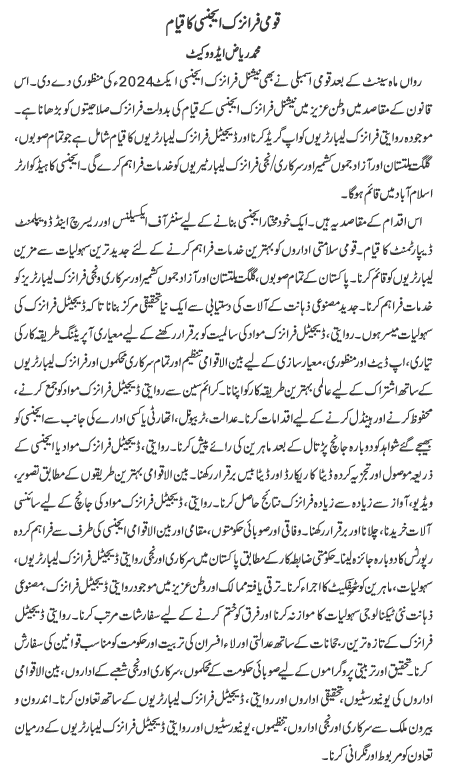 قومی فرانزک ایجنسی کا قیام
محمد ریاض ایڈووکیٹ
رواں ماہ سینٹ کے بعد قومی اسمبلی نے بھی نیشنل فرانزک ایجنسی ایکٹ 2024ء کی منظوری دے دی۔ اس
قانون کے مقاصد میں وطن عزیز میں نیشنل فرانزک ایجنسی کے قیام کی بدولت فرانزک صلاحیتوں کو بڑھانا ہے۔
موجودہ روایتی فرانزک لیبارٹریوں کو اپ گریڈ کرنا اور ڈیجیٹل فرانزک لیبارٹریوں کا قیام شامل ہے جو تمام صوبوں،
گلگت بلتستان اور آزاد جموں کشمیر اور سرکاری/نجی فرانزک لیبارٹیریوں کو خدمات فراہم کرے گی۔ ایجنسی کا ہیڈ کوارٹر
اسلام آباد میں قائم ہوگا۔
اس اقدام کے مقاصد یہ ہیں۔ ایک خود مختار ایجنسی بنانے کے لیے سنٹر آف ایکسیلنس اور ریسرچ اینڈ ڈویلپمنٹ
ڈیپارٹمنٹ کا قیام۔ قومی سلامتی اداروں کو بہترین خدمات فراہم کرنے کے لئے جدید ترین سہولیات سے مزین
لیبارٹریوں کو قائم کرنا۔ پاکستان کے تمام صوبوں، گلگت بلتستان اور آزاد جموں کشمیر اور سرکاری و نجی فرانزک لیبارٹریز کو
خدمات فراہم کرنا۔ جدید مصنوعی ذہانت کے آلات کی دستیابی سے ایک نیا تحقیقی مرکز بنانا تاکہ ڈیجیٹل فرانزک کی
سہولیات میسر ہوں۔ روایتی، ڈیجیٹل فرانزک مواد کی سالمیت کو برقرار رکھنے کے لیے معیاری آپریٹنگ طریقہ کار کی
تیاری، اپ ڈیٹ اور منظوری، معیار سازی کے لیے بین الاقوامی تنظیم اور تمام سرکاری محکموں اور فرانزک لیبارٹریوں
کے ساتھ اشتراک کے لیے عالمی بہترین طریقہ کار کو اپنانا۔ کرائم سین سے روایتی ڈیجیٹل فرانزک مواد کو جمع کرنے،
محفوظ کرنے اور ہینڈل کرنے کے لیے اقدامات کرنا۔ عدالت، ٹریبونل، اتھارٹی یا کسی ادارے کی جانب سے ایجنسی کو
بھیجے گئے شواہد کو دوبارہ جانچ پڑتال کے بعد ماہرین کی رائے پیش کرنا۔ روایتی، ڈیجیٹل فرانزک مواد یا ایجنسی کے
ذریعہ موصول اور تجزیہ کردہ ڈیٹا کا ریکارڈ اور ڈیٹا بیس برقرار رکھنا۔ بین الاقوامی بہترین طریقوں کے مطابق تصویر،
ویڈیو، آواز سے زیادہ سے زیادہ فرانزک نتائج حاصل کرنا۔ روایتی، ڈیجیٹل فرانزک مواد کی جانچ کے لیے سائنسی
آلات خریدنا، چلانا اور برقرار رکھنا۔ وفاقی اور صوبائی حکومتوں، مقامی اور بین الاقوامی ایجنسی کی طرف سے فراہم کردہ
رپورٹس کا دوبارہ جائزہ لینا۔ حکومتی ضابطہ کار کے مطابق پاکستان میں سرکاری اور نجی روایتی ڈیجیٹل فرانزک لیبارٹریوں،
سہولیات، ماہرین کو سرٹیفکیٹ کا اجراء کرنا۔ ترقی یافتہ ممالک اور وطن عزیز میں موجود روایتی ڈیجیٹل فرانزک، مصنوعی
ذہانت نئی ٹیکنالوجی سہولیات کا موازنہ کرنا اور فرق کو ختم کرنے کے لیے سفارشات مرتب کرنا۔ روایتی ڈیجیٹل
فرانزک کے تازہ ترین رجحانات کے ساتھ عدالتی اور لاء افسران کی تربیت اور حکومت کو مناسب قوانین کی سفارش
کرنا۔ تحقیق اور تربیتی پروگراموں کے لیے صوبائی حکومت کے محکموں، سرکاری اور نجی شعبے کے اداروں، بین الاقوامی
اداروں کی یونیورسٹیوں، تحقیقی اداروں اور روایتی، ڈیجیٹل فرانزک لیبارٹریوں کے ساتھ تعاون کرنا۔ اندرون و
بیرون ملک سے سرکاری اور نجی اداروں، تنظیموں، یونیورسٹیوں اور روایتی ڈیجیٹل فرانزک لیبارٹریوں کے درمیان
تعاون کو مربوط اور نگرانی کرنا۔